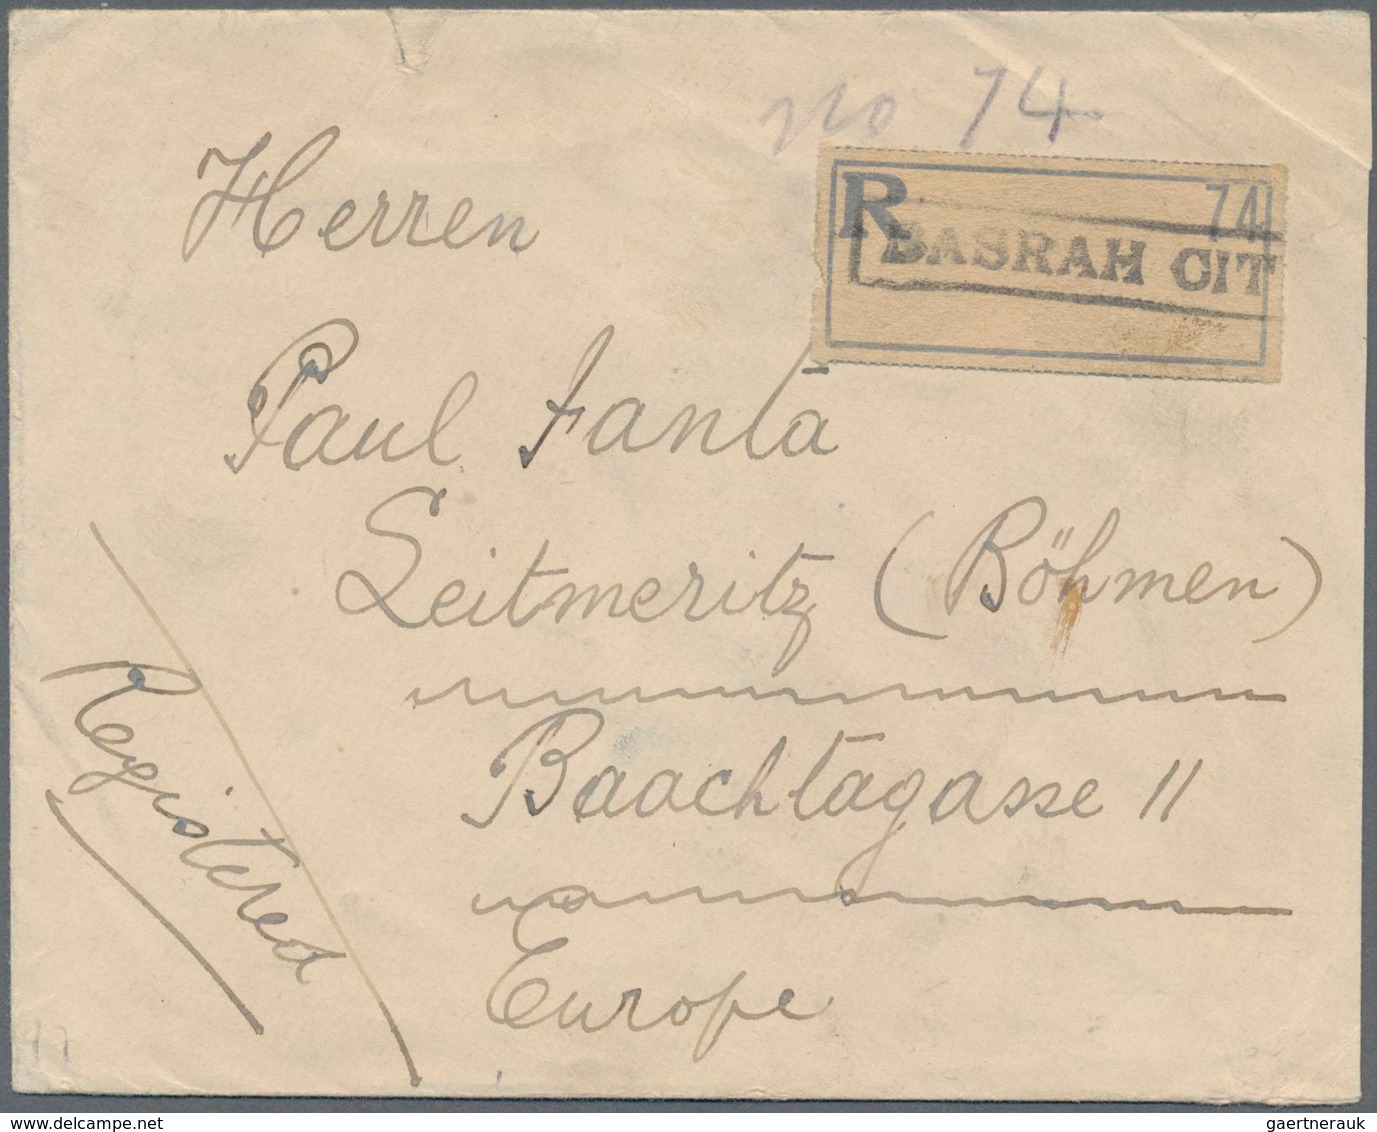 no 74
R 74
BASRAH CIT
Herren
Paul Fanta
Leitmeritz (Böhmen)
Baachtagasse 11
Registered
Europe
77
delcampe.net
gaertnerauk